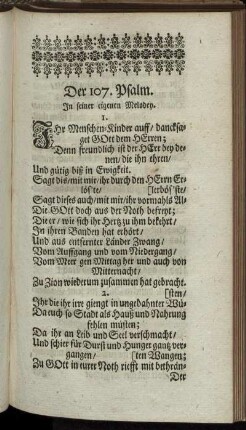 Der 107. Psalm.
In seiner eigenen Melodey.
1.
Ihr Menschen-Kinder auff/ dancksa-
get GOtt dem HErren;
Denn freundlich ist der HErr bey de-
nen/ die ihn ehren/
Und gütig biß in Ewigkeit.
Sagt dis/ mit mir/ ihr durch den HErrn Er-
lös'te/ [terlös'ste/
Sagt dieses auch/ mit mir/ ihr vormahls
Die GOtt doch aus der Noth befreyt;
Die er/ wie sich ihr Hertz zu ihm bekehrt/
In ihren Banden hat erhört/
Und aus entfernter Länder Zwang/
Vom Auffgang und vom Niedergang/
Vom Meer gen Mittag her und auch von
Mitternacht/
Zu Zion wiederum zusammen hat gebracht.
2. [sten/
Ihr die ihr irre giengt in ungebahnter Wü-
Da euch so Stadt als Hauß und Nahrung
fehlen müsten;
Da ihr an Leib und Seel verschmacht/
Und schier für Durst und Hunger gantz ver-
gangen/ [ten Wangen;
Zu GOtt in eurer Noth riefft mit bethrän-
Der